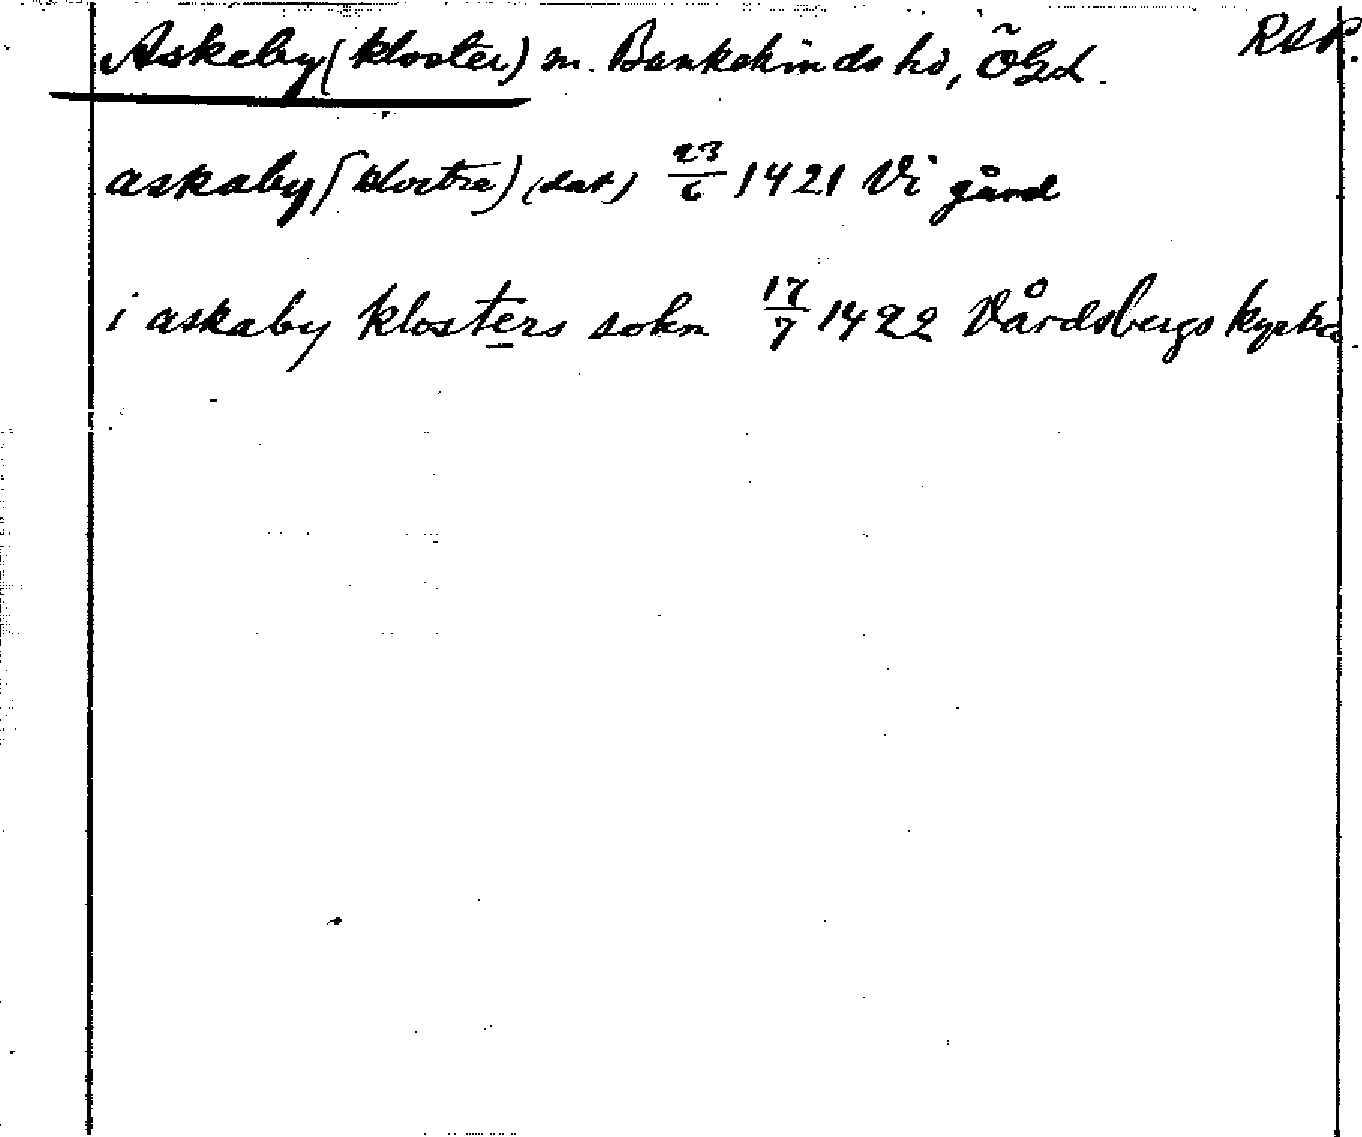 Askeby (kloster) sn. Bankekinds hd, ÖGtl. RAP.
askaby (klostre) (dat) 23/6 1421 Vi gård
i askaby klosters sokn 17/7 1422 Vårdsbergs kyrka